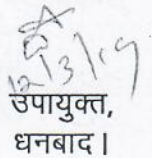 12/3/19
उपायुक्त,
धनबाद।